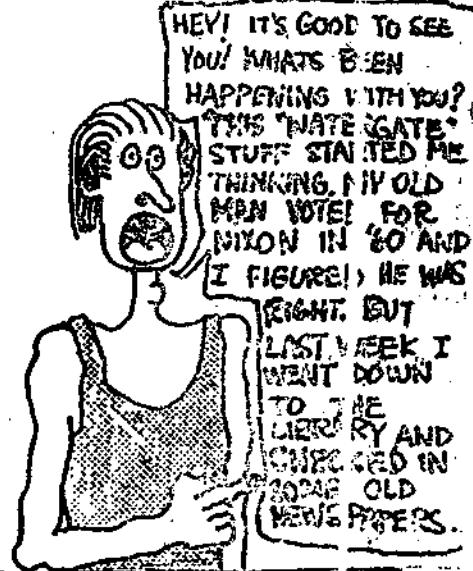 HEY! IT'S GOOD TO SEE
YOU! WHATS BEEN
HAPPENING WITH YOU?
THIS "WATERGATE"
STUFF STARTED ME
THINKING. MY OLD
MAN VOTED FOR
NIXON IN '60 AND
I FIGURED HE WAS
RIGHT. BUT
LAST WEEK I
WENT DOWN
TO THE
LIBRARY AND
CHECKED IN
SOME OLD
NEWSPAPERS.